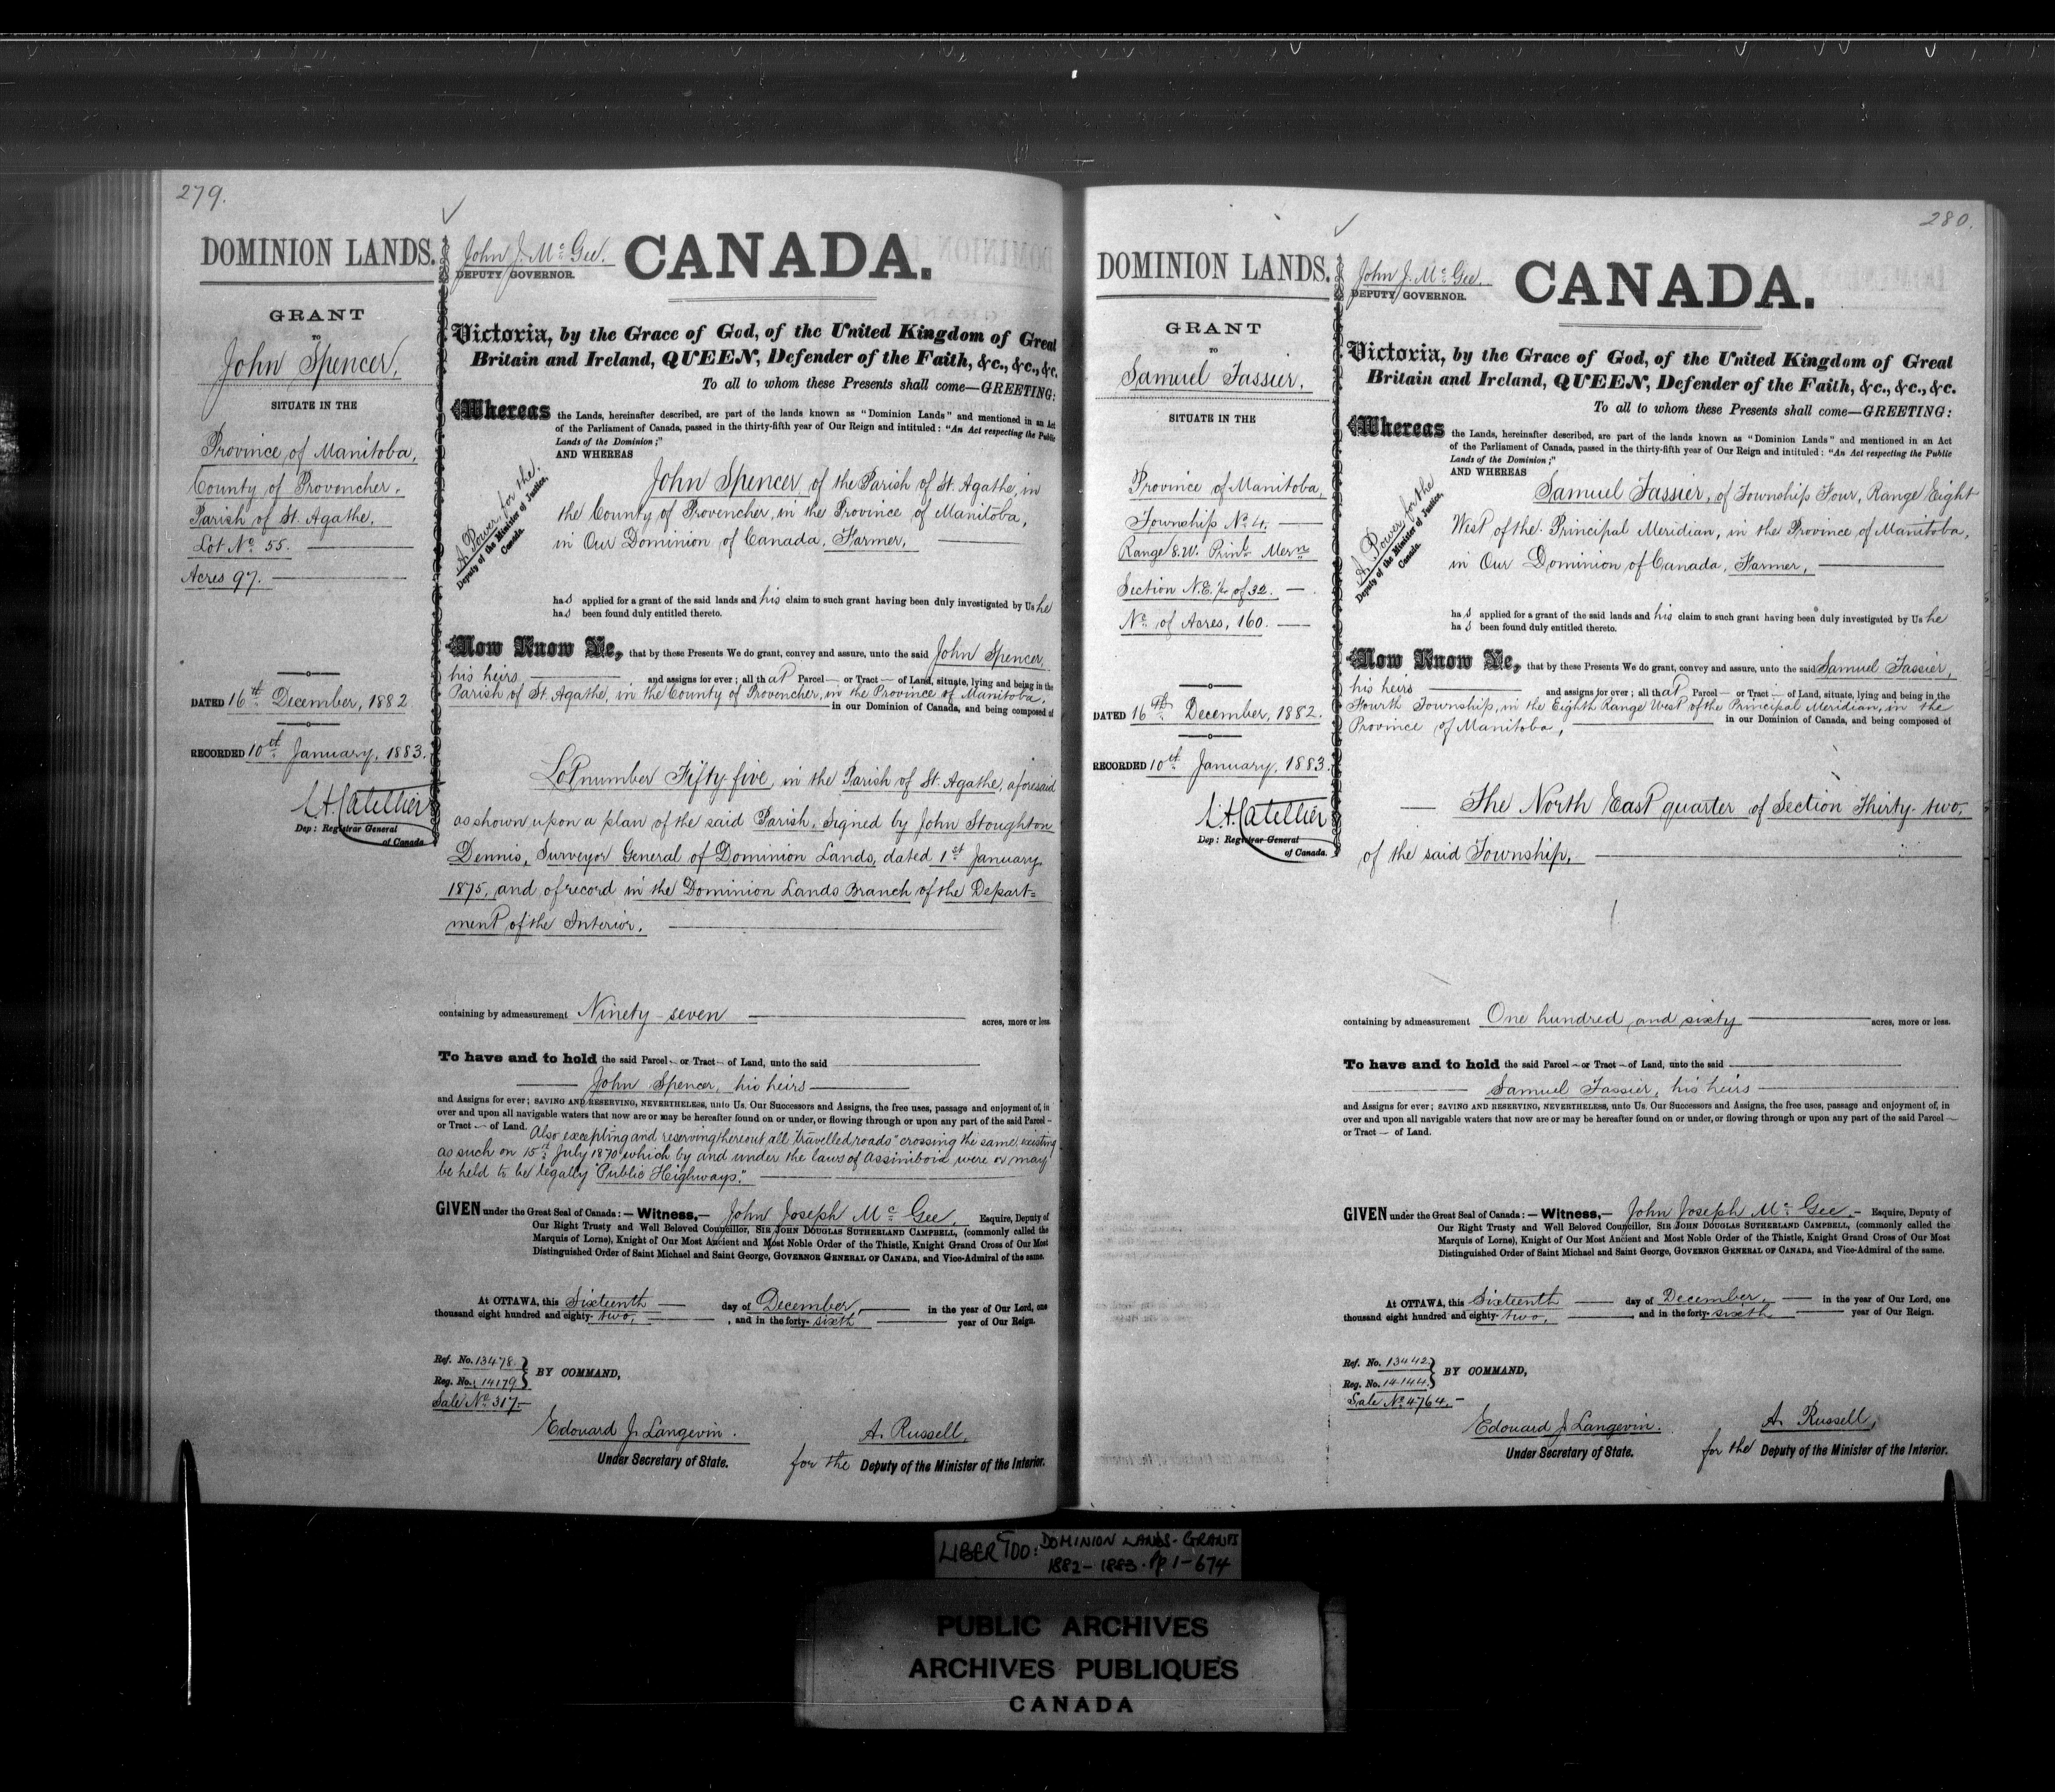 279.
DOMINION LANDS.
GRANT
TO
John Spencer,
SITUATE IN THE
Province of Manitoba,
County of Provencher,
Parish of St. Agathe,
Lot No 55.
Acres 97.
DATED 16th December, 1882
RECORDED 10th January, 1883.
L.A. Catellier
Dep: Registrar General
of Canada.
John J. McGee.
DEPUTY GOVERNOR.
CANADA.
Victoria, by the Grace of God, of the United Kingdom of Great
Britain and Ireland, QUEEN, Defender of the Faith, &c., &c., &c.
To all to whom these Presents shall come—GREETING:
Whereas the Lands, hereinafter described, are part of the lands known as "Dominion Lands" and mentioned in an Act
of the Parliament of Canada, passed in the thirty-fifth year of Our Reign and intituled: "An Act respecting the Public
Lands of the Dominion;"
AND WHEREAS
A. Power, for the
Deputy of the Minister of Justice,
Canada.
John Spencer, of the Parish of St. Agathe, in
the County of Provencher, in the Province of Manitoba,
in Our Dominion of Canada, Farmer,
has applied for a grant of the said lands and his claim to such grant having been duly investigated by Us he
has been found duly entitled thereto.
Now Know Ye, that by these Presents We do grant, convey and assure, unto the said John Spencer,
his heirs and assigns for ever; all that Parcel or Tract of Land, situate, lying and being in the
Parish of St. Agathe, in the County of Provencher, in the Province of Manitoba,
in our Dominion of Canada, and being composed of
Lot number Fifty-five, in the Parish of St. Agathe, aforesaid
as shown upon a plan of the said Parish, signed by John Stoughton
Dennis, Surveyor General of Dominion Lands, dated 1st January
1875, and of record in the Dominion Lands Branch of the Depart=
ment of the Interior.
containing by admeasurement Ninety-seven acres, more or less.
To have and to hold the said Parcel or Tract of Land, unto the said
John Spencer, his heirs
and Assigns for ever; SAVING AND RESERVING, NEVERTHELESS, unto Us, Our Successors and Assigns, the free uses, passage and enjoyment of, in
over and upon all navigable waters that now are or may be hereafter found on or under, or flowing through or upon any part of the said Parcel
or Tract of Land. Also excepting and reserving thereout all "travelled roads" crossing the same, existing
as such on 15th July 1870 which by and under the laws of Assiniboia were or may
be held to be legally "Public Highways."
GIVEN under the Great Seal of Canada:—Witness,— John Joseph McGee, Esquire, Deputy of
Our Right Trusty and Well Beloved Councillor, SIR JOHN DOUGLAS SUTHERLAND CAMPBELL, (commonly called the
Marquis of Lorne), Knight of Our Most Ancient and Most Noble Order of the Thistle, Knight Grand Cross of Our Most
Distinguished Order of Saint Michael and Saint George, GOVERNOR GENERAL OF CANADA, and Vice-Admiral of the same.
At OTTAWA, this Sixteenth day of December, in the year of Our Lord, one
thousand eight hundred and eighty-two, , and in the forty-sixth year of Our Reign.
Ref. No. 13478.
Reg. No. 14179
BY COMMAND,
Sale No. 317.
Edouard J. Langevin.
Under Secretary of State.
A. Russell,
for the Deputy of the Minister of the Interior.
280.
DOMINION LANDS.
GRANT
TO
Samuel Tassier,
SITUATE IN THE
Province of Manitoba,
Township No 4,
Range 8. W. Prinl Mern
Section N.E. ¼ of 32.
No. of Acres, 160.
DATED 16th December, 1882.
RECORDED 10th January, 1883.
L.A. Catellier
Dep: Registrar General
of Canada.
John J. McGee.
DEPUTY GOVERNOR.
CANADA.
Victoria, by the Grace of God, of the United Kingdom of Great
Britain and Ireland, QUEEN, Defender of the Faith, &c., &c., &c.
To all to whom these Presents shall come—GREETING:
Whereas the Lands, hereinafter described, are part of the lands known as "Dominion Lands" and mentioned in an Act
of the Parliament of Canada, passed in the thirty-fifth year of Our Reign and intituled: "An Act respecting the Public
Lands of the Dominion;"
AND WHEREAS
A. Power for the
Deputy of the Minister of Justice,
Canada.
Samuel Tassier, of Township Four, Range Eight
West of the Principal Meridian, in the Province of Manitoba,
in Our Dominion of Canada, Farmer,
has applied for a grant of the said lands and his claim to such grant having been duly investigated by Us he
has been found duly entitled thereto.
Now Know Ye, that by these Presents We do grant, convey and assure, unto the said Samuel Tassier,
his heirs and assigns for ever; all that Parcel or Tract of Land, situate, lying and being in the
Fourth Township, in the Eighth Range West of the Principal Meridian, in the
Province of Manitoba, in our Dominion of Canada, and being composed of
The North East quarter of Section Thirty-two,
of the said Township,
containing by admeasurement One hundred and sixty acres, more or less.
To have and to hold the said Parcel or Tract of Land, unto the said
Samuel Tassier, his heirs
and Assigns for ever; SAVING AND RESERVING, NEVERTHELESS, unto Us, Our Successors and Assigns, the free uses, passage and enjoyment of, in
over and upon all navigable waters that now are or may be hereafter found on or under, or flowing through or upon any part of the said Parcel
or Tract of Land.
GIVEN under the Great Seal of Canada:—Witness,— John Joseph McGee,— Esquire, Deputy of
Our Right Trusty and Well Beloved Councillor, SIR JOHN DOUGLAS SUTHERLAND CAMPBELL, (commonly called the
Marquis of Lorne), Knight of Our Most Ancient and Most Noble Order of the Thistle, Knight Grand Cross of Our Most
Distinguished Order of Saint Michael and Saint George, GOVERNOR GENERAL OF CANADA, and Vice-Admiral of the same.
At OTTAWA, this Sixteenth day of December, in the year of Our Lord, one
thousand eight hundred and eighty-two, , and in the forty-sixth year of Our Reign.
Ref. No. 13442.
Reg. No. 14144.
BY COMMAND,
Sale No. 4764.
Edouard J. Langevin.
Under Secretary of State.
A. Russell,
for the Deputy of the Minister of the Interior.
DOMINION LANDS-GRANTS
1882-1883. Pp 1-674
PUBLIC ARCHIVES
ARCHIVES PUBLIQUES
CANADA